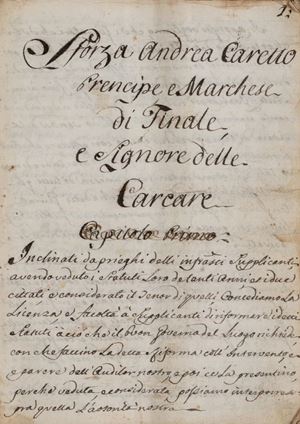 1:
Sforza Andrea Caretto
Prencipe e Marchese
di Finale,
e Signore delle
Carcare
Capitolo Primo
Inclinati da prieghi delli infratti Supplicanti,
avendo veduto i Statuti Loro de tanti Anni a
citati e considerato il Tenor di quelli Concediamo La
Licenza e facoltà a Supplicanti di riformare i detti
Statuti acciò che il buon governo del Luogo richied
con che faccino La detta Riforma coll' Intervento
e parere dell' Auditor nostro, e poi ce La presentino
perchè veduta e considerata possiamo interporre so
pra quella L' autorità nostra